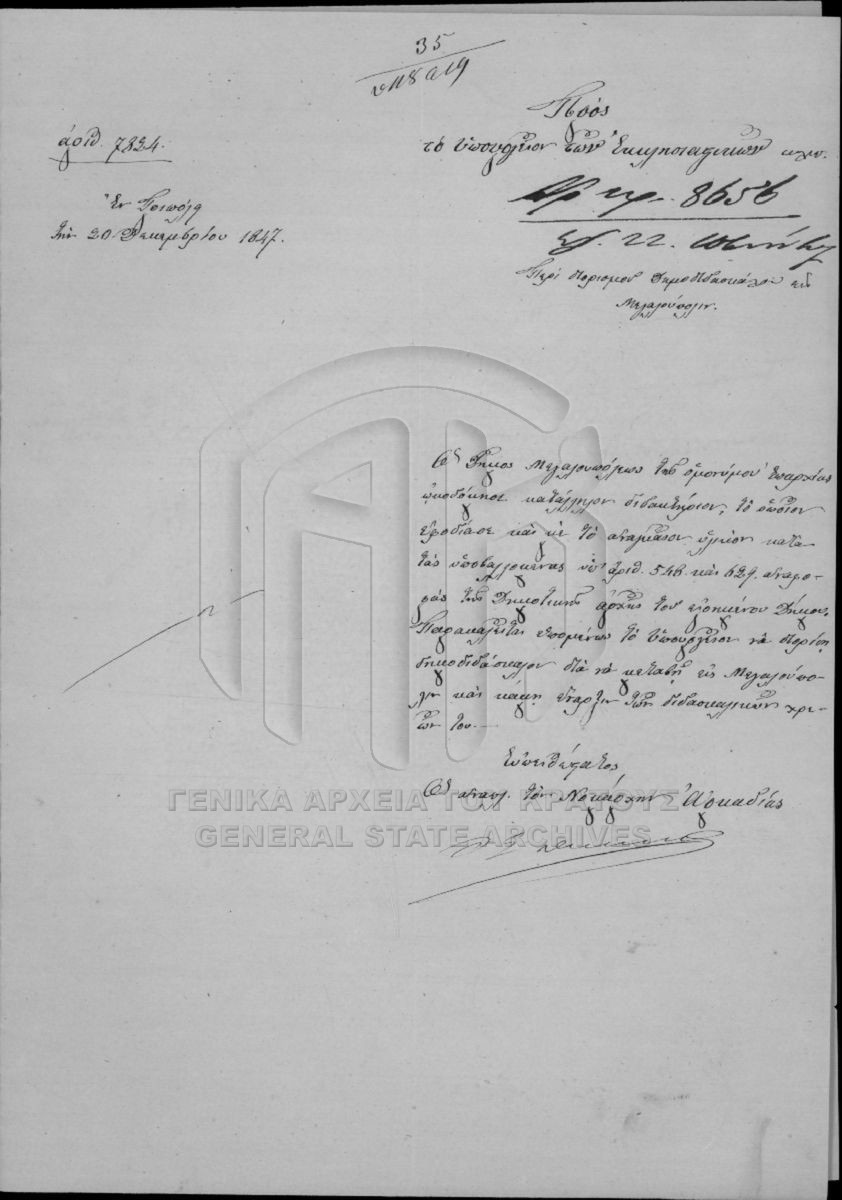 35
ἀριθ. 7824.
Πρὸς
τὸ Ὑπουργεῖον τῶν Ἐκκλησιαστικῶν κλπ.
Ἐν Τριπόλει
τὴν 20 Δεκεμβρίου 1847.
Ἀρ. πρ. 8656
22
Περὶ διορισμοῦ δημοδιδασκάλου εἰς
Μεγαλούπολιν.
Ὁ Δῆμος Μεγαλουπόλεως τῆς ὁμωνύμου Ἐπαρχίας
ᾠκοδόμησε κατάλληλον διδακτήριον, τὸ ὁποῖον
ἐφοδίασε καὶ μὲ τὸ ἀναγκαῖον ὑλικὸν κατὰ
τὰς ὑποβαλλομένας ὑπ' ἀριθ. 546 καὶ 629 ἀναφο-
ρὰς τῆς Δημοτικῆς ἀρχῆς τοῦ εἰρημένου Δήμου.
Παρακαλεῖται ἑπομένως τὸ Ὑπουργεῖον νὰ διορίσῃ
δημοδιδάσκαλον διὰ νὰ μεταβῇ εἰς Μεγαλούπο-
λιν καὶ κάμῃ ἔναρξιν τῶν διδασκαλικῶν χρε-
ῶν του.
Εὐπειθέστατος
Ὁ ἀναπλ. τὸν Νομάρχην Ἀρκαδίας
ΓΕΝΙΚΑ ΑΡΧΕΙΑ ΤΟΥ ΚΡΑΤΟΥΣ
GENERAL STATE ARCHIVES